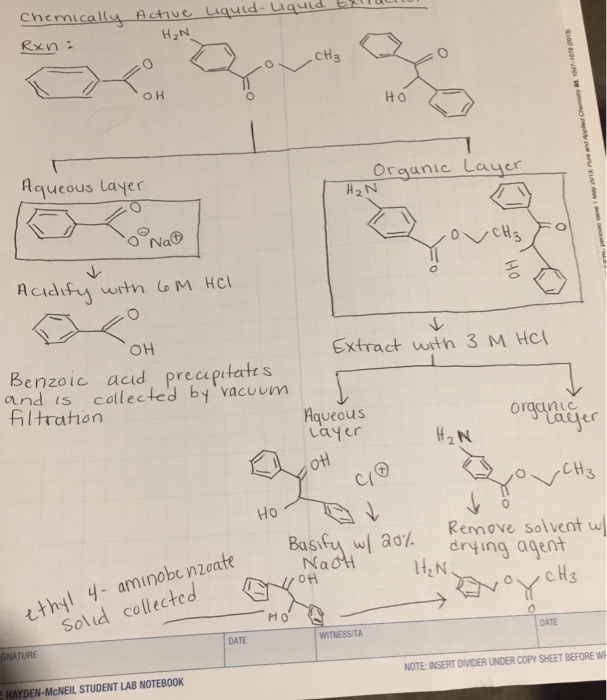 Chemically Active Liquid-Liquid Extraction
Rxn :
H₂N
O
OH
O
O
CH₃
O
HO
Aqueous Layer
Organic Layer
O
O⊖ Na⊕
H₂N
O
O
CH₃
O
HO
Acidify with 6M HCl
O
OH
Extract with 3 M HCl
Benzoic acid precipitates
and is collected by vacuum
filtration
Aqueous
Layer
organic
Layer
OH
HO
Cl⊕
H₂N
O
O
CH₃
Basify w/ 20%
NaOH
Remove solvent w/
drying agent
ethyl 4-aminobenzoate
solid collected
OH
HO
H₂N
O
O
CH₃
GNATURE
DATE
WITNESS/TA
DATE
E HAYDEN-McNEIL STUDENT LAB NOTEBOOK
NOTE: INSERT DIVIDER UNDER COPY SHEET BEFORE WR